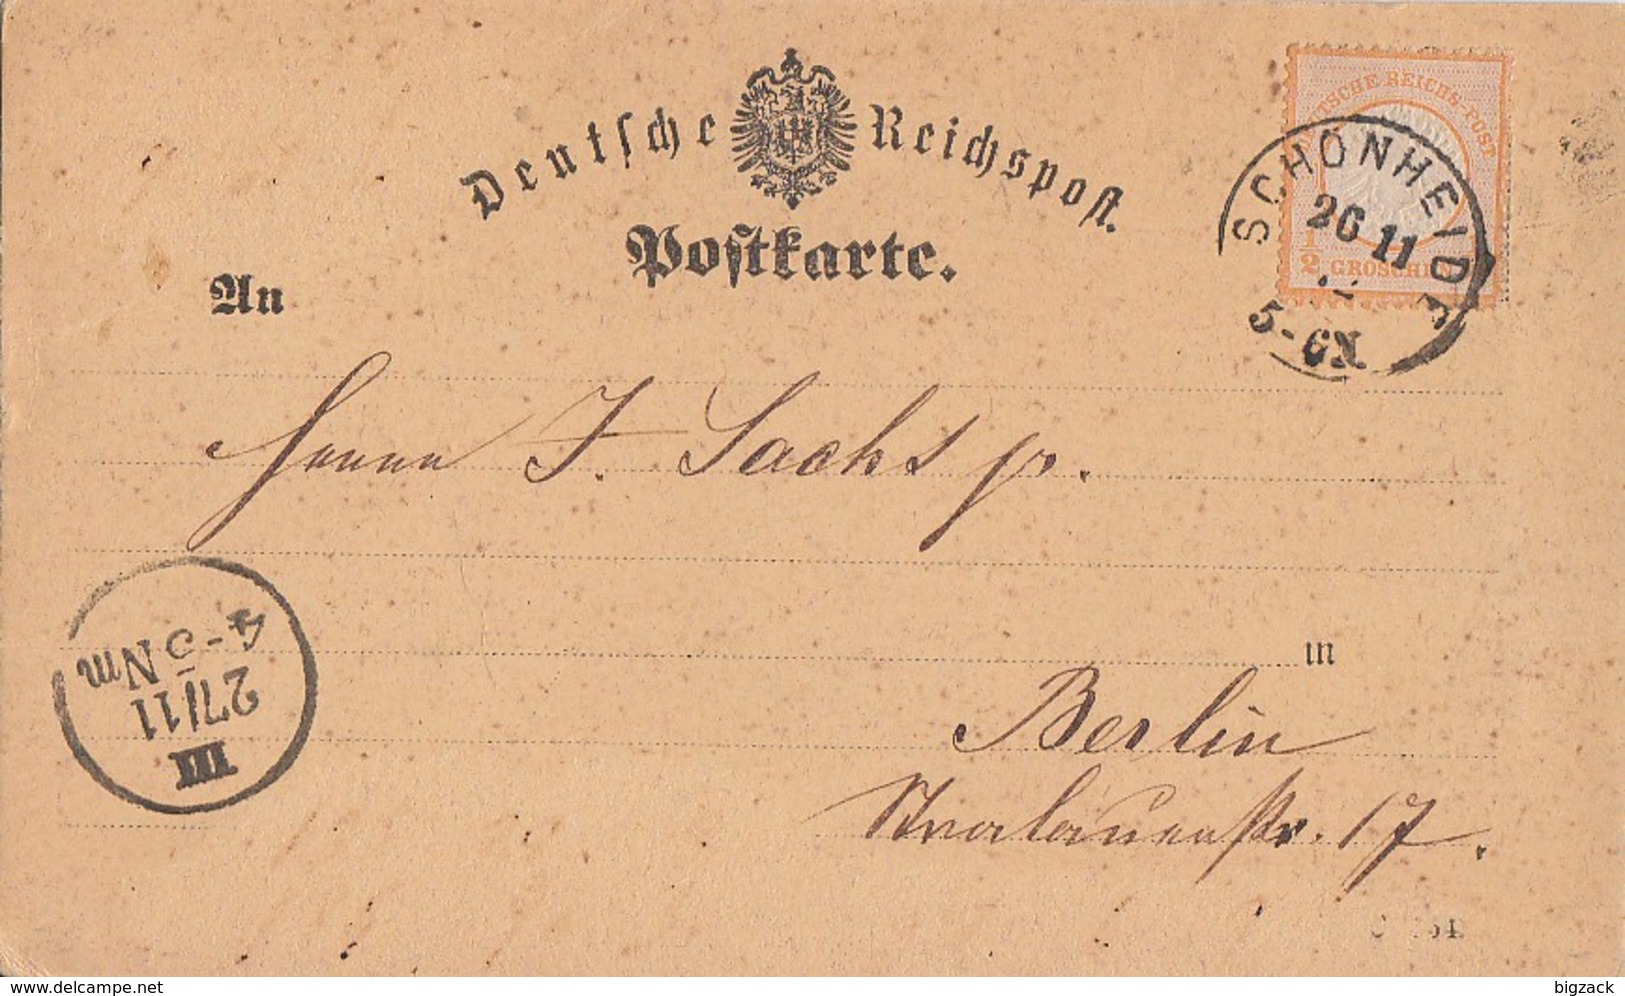 Deutsche Reichspost.
Postkarte.
An
DEUTSCHE REICHS-POST
1/2 GROSCHEN
SCHÖNHEIDE
26 11
5-6N
Herrn J. Sachs jr.
in
Berlin
Stralauerstr. 17.
III
27/11
4-5 Nm
delcampe.net
bigzack